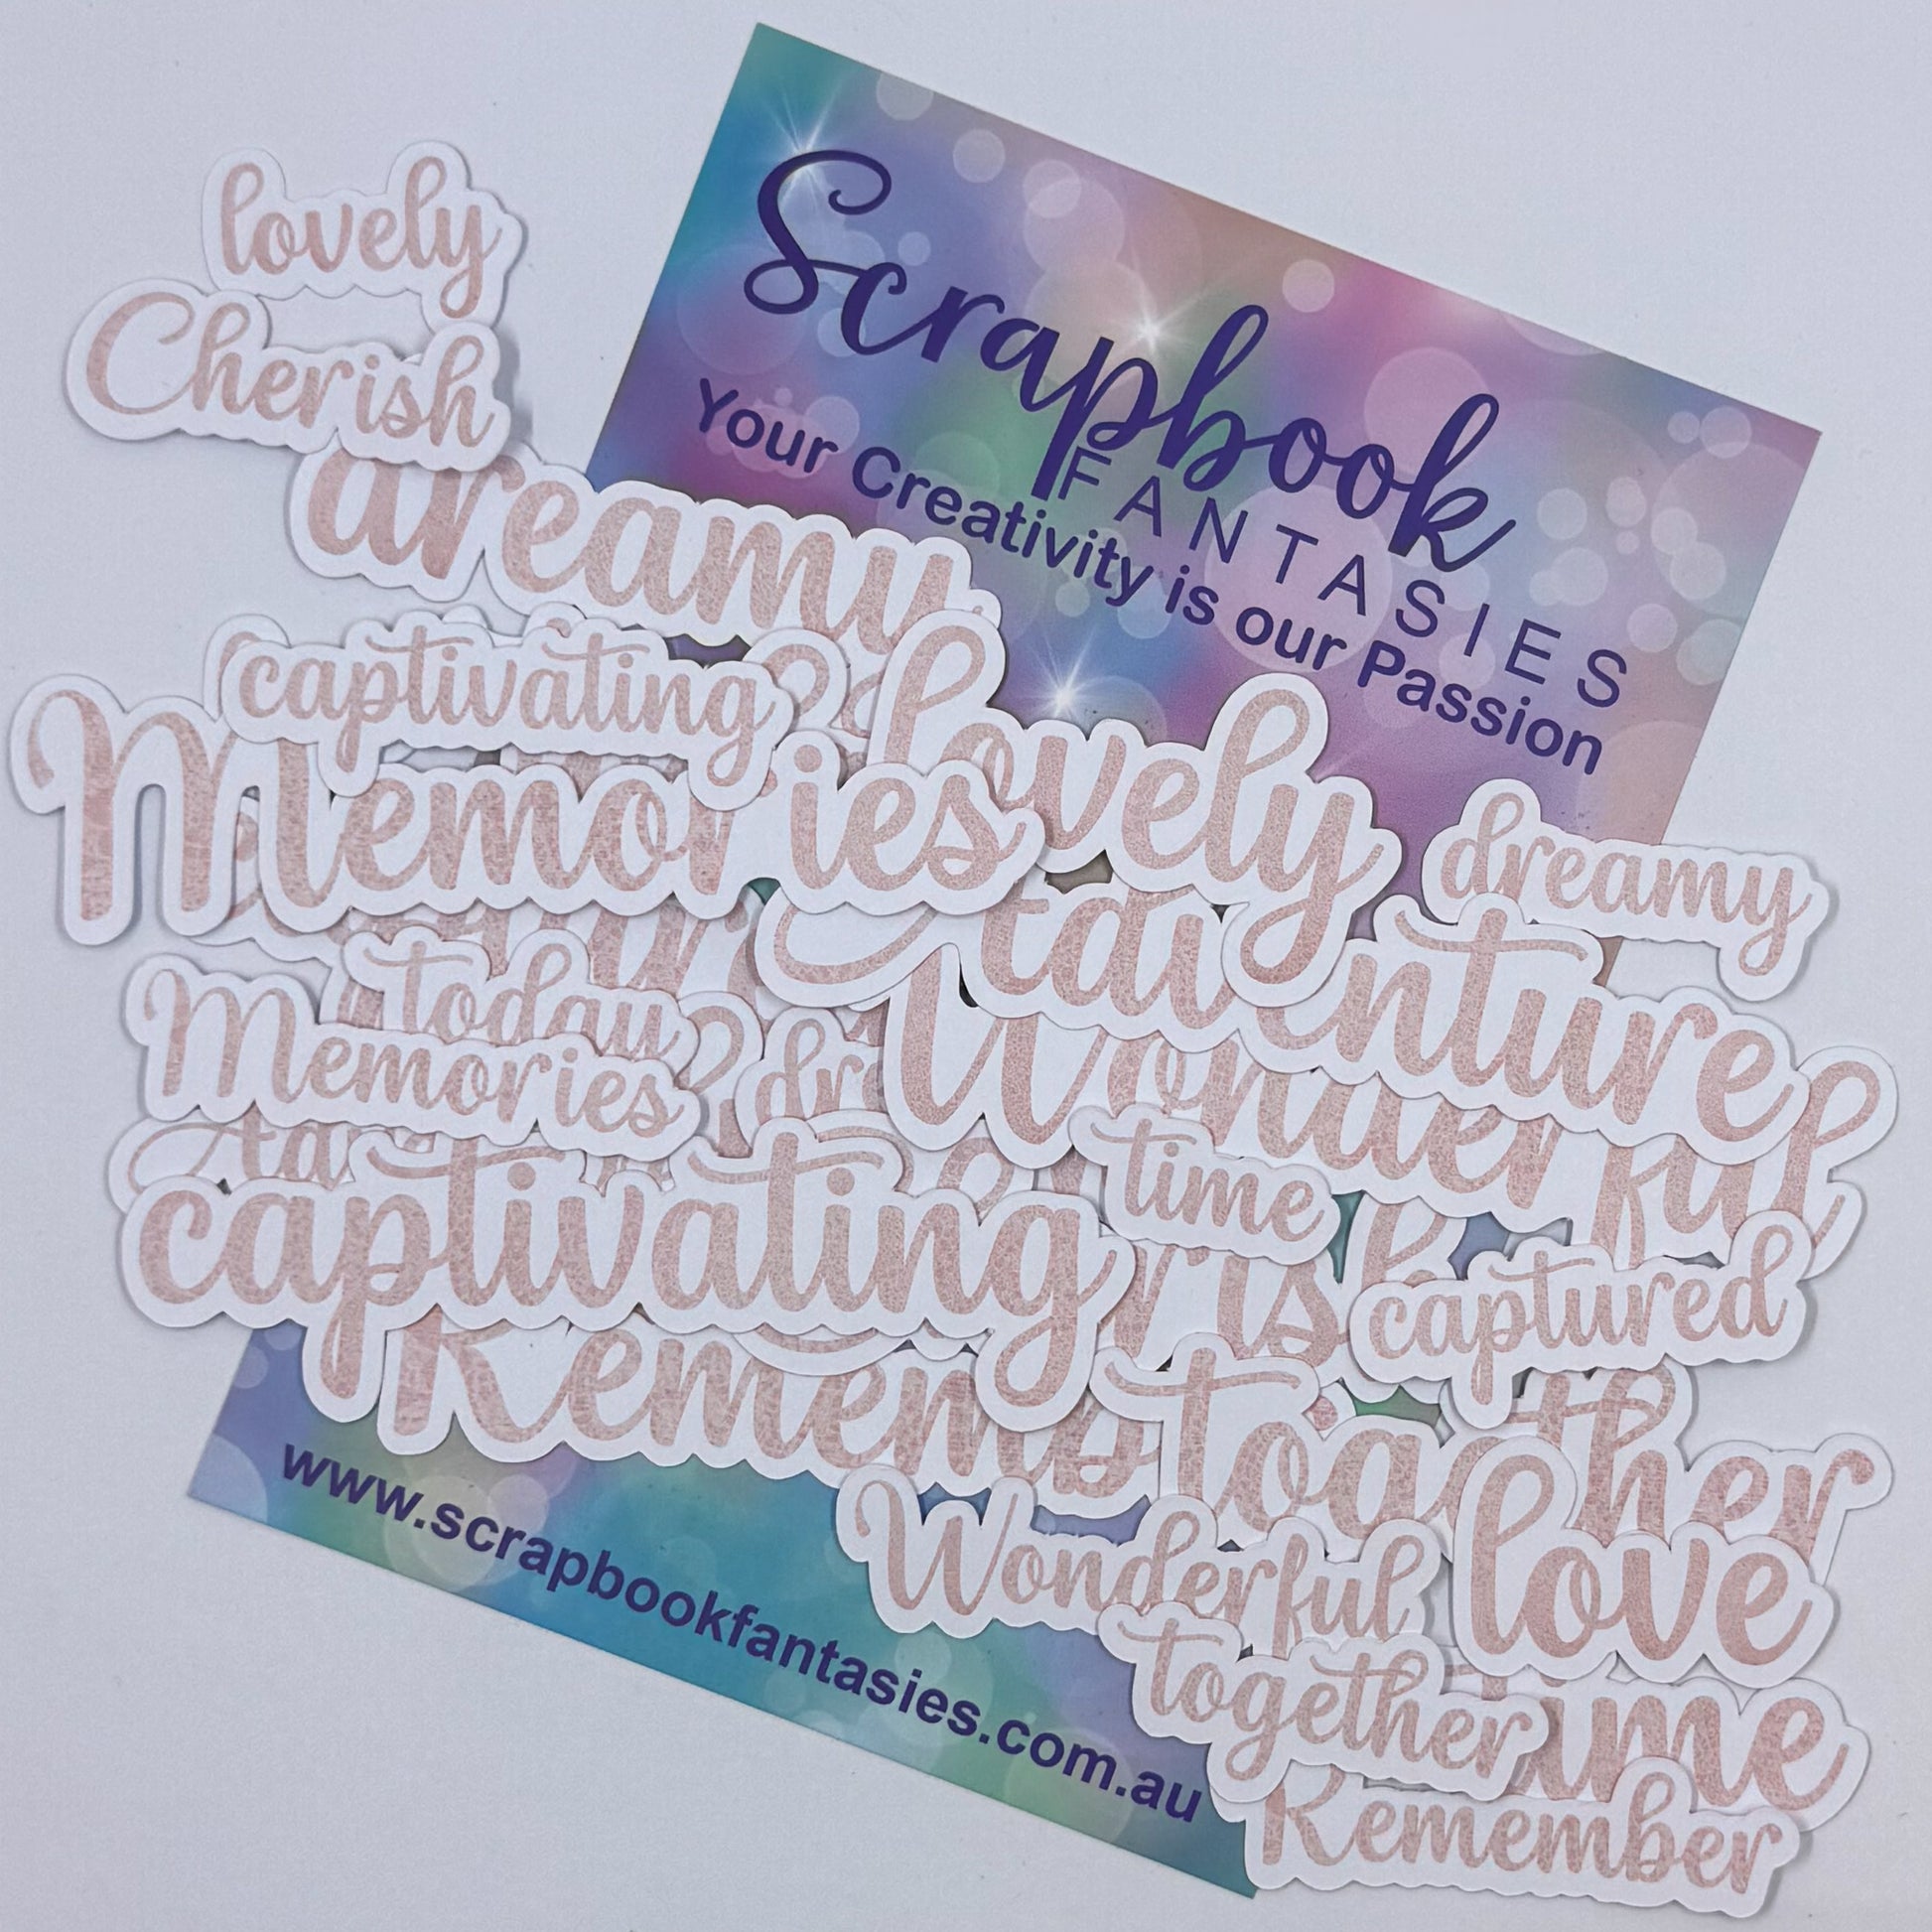 lovely
Cherish
Scrapbook
FANTASIES
Your Creativity is our Passion
dreamy
captivating
Memories
lovely
dreamy
Adventure
today
Memories
Wonderful
time
captivating
captured
together
love
Wonderful
together
time
Remember
www.scrapbookfantasies.com.au